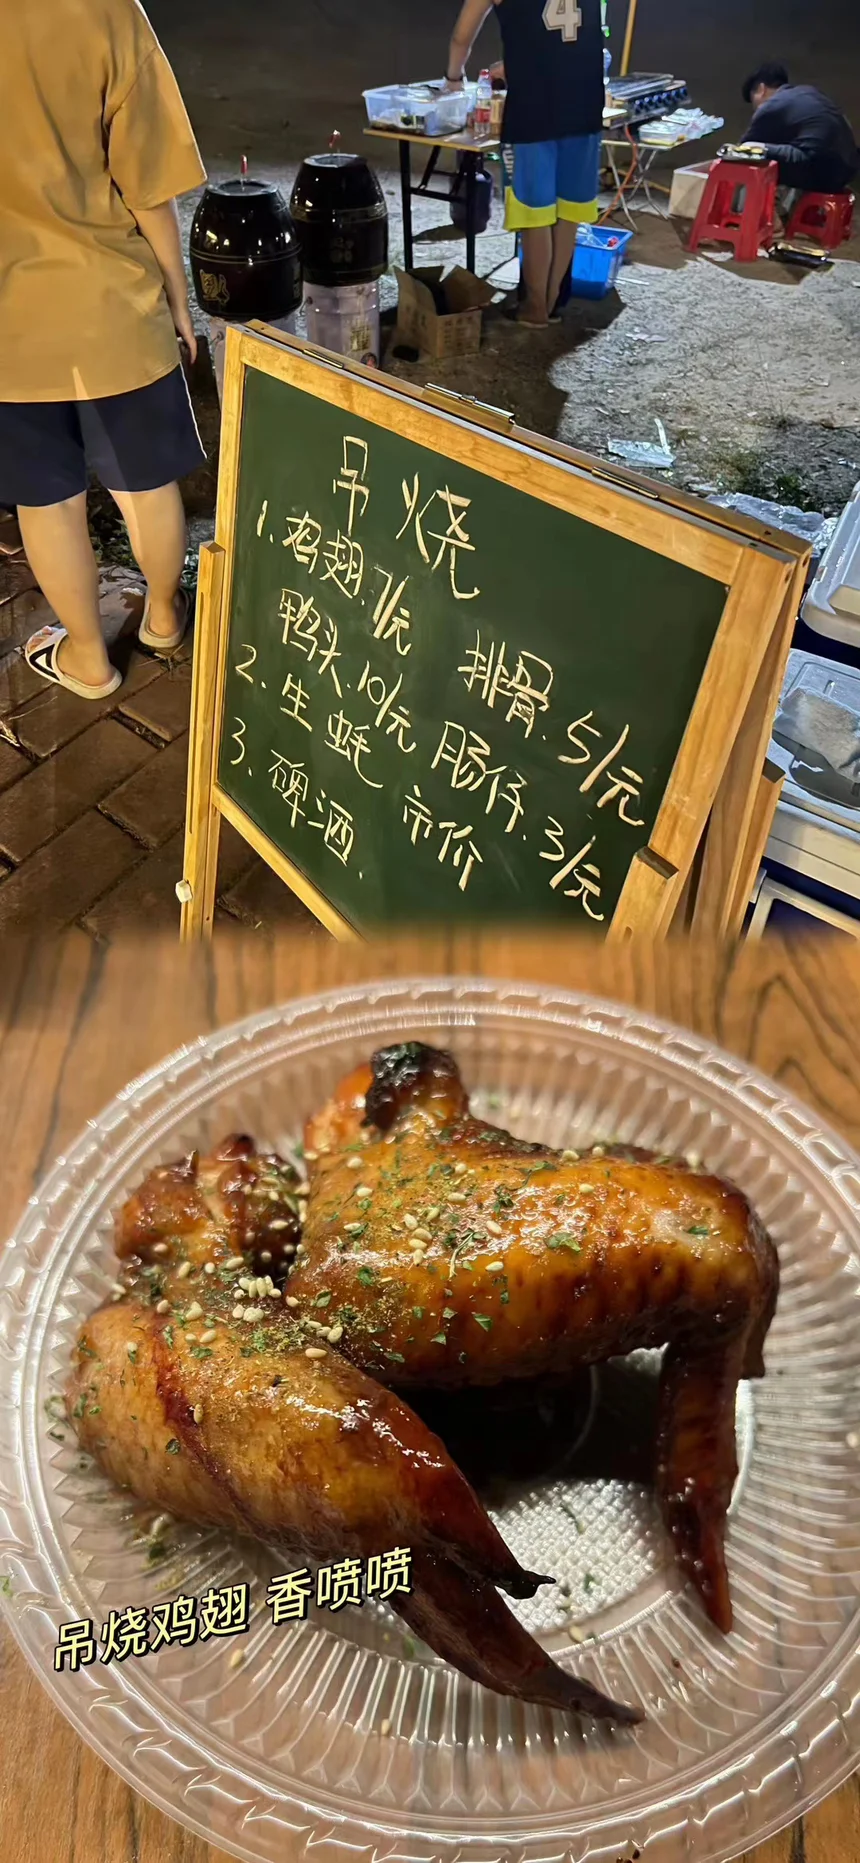 4
吊烧
1.鸡翅.7/元 排骨.5/元
鸭头.10/元 肠仔.3/元
2.生蚝 市价
3.啤酒.
吊烧鸡翅 香喷喷